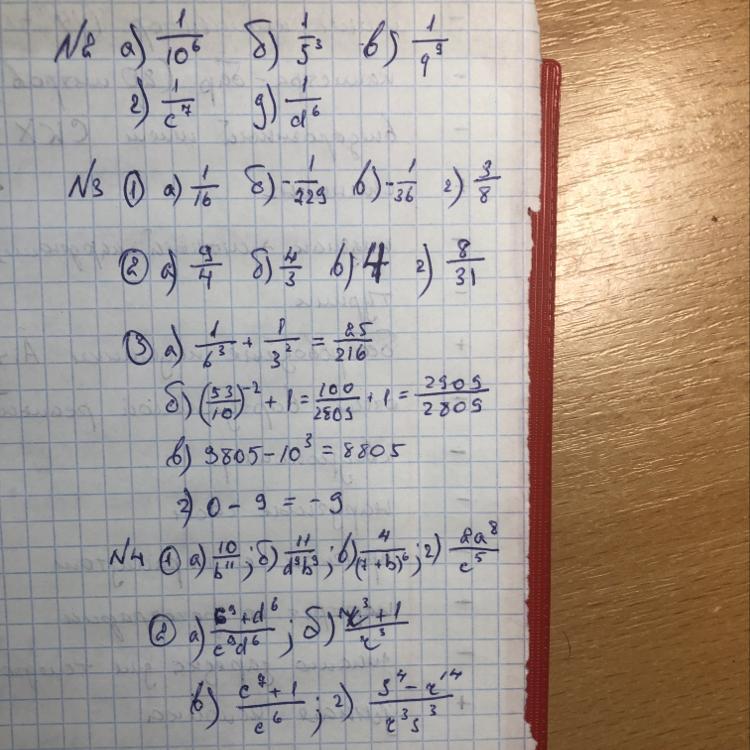 №2 а) 1/10⁶ б) 1/5³ в) 1/9⁹
г) 1/c⁷ д) 1/d⁶
№3 ① а) 1/16 б) -1/229 в) -1/36 г) 3/8
② а) 9/4 б) 4/3 в) 4 г) 8/31
③ а) 1/6³ + 1/3² = 25/216
б) (53/10)⁻² + 1 = 100/2809 + 1 = 2909/2809
в) 9805 - 10³ = 8805
г) 0 - 9 = -9
№4 ① а) 10/b¹¹; б) 11/d⁹b⁹; в) 4/(7+b)⁶; г) 2a⁸/c⁵
② а) c⁹+d⁶/c⁹d⁶; б) x³+1/x³
в) c⁷+1/c⁶; г) s⁴-r¹⁴/r³s³